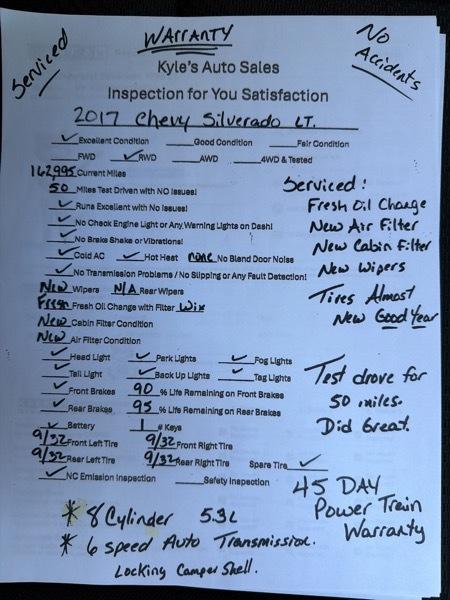 Serviced
WARRANTY
No Accidents
Kyle's Auto Sales
Inspection for You Satisfaction
2017 Chevy Silverado LT.
✓ Excellent Condition ___Good Condition ___Fair Condition
___FWD ✓ RWD ___AWD ___4WD & Tested
162995 Current Miles
50 Miles Test Driven with NO Issues!
✓ Runs Excellent with No Issues!
✓ No Check Engine Light or Any Warning Lights on Dash!
✓ No Brake Shake or Vibrations!
✓ Cold AC ✓ Hot Heat none No Bland Door Noise
✓ No Transmission Problems / No Slipping or Any Fault Detection!
New Wipers N/A Rear Wipers
Fresh Fresh Oil Change with Filter Wix
New Cabin Filter Condition
New Air Filter Condition
✓ Head Light ✓ Park Lights ✓ Fog Lights
✓ Tail Light ✓ Back Up Lights ✓ Tag Lights
✓ Front Brakes 90 % Life Remaining on Front Brakes
✓ Rear Brakes 95 % Life Remaining on Rear Brakes
✓ Battery 1 # Keys
9/32 Front Left Tire 9/32 Front Right Tire
9/32 Rear Left Tire 9/32 Rear Right Tire Spare Tire ✓
✓ NC Emission Inspection ___Safety Inspection
Serviced:
Fresh Oil Change
New Air Filter
New Cabin Filter
New Wipers
Tires Almost
New Good Year
Test drove for
50 miles.
Did Great.
45 DAY
Power Train
Warranty
* 8 Cylinder 5.3L
* 6 speed Auto Transmission.
Locking Camper Shell.